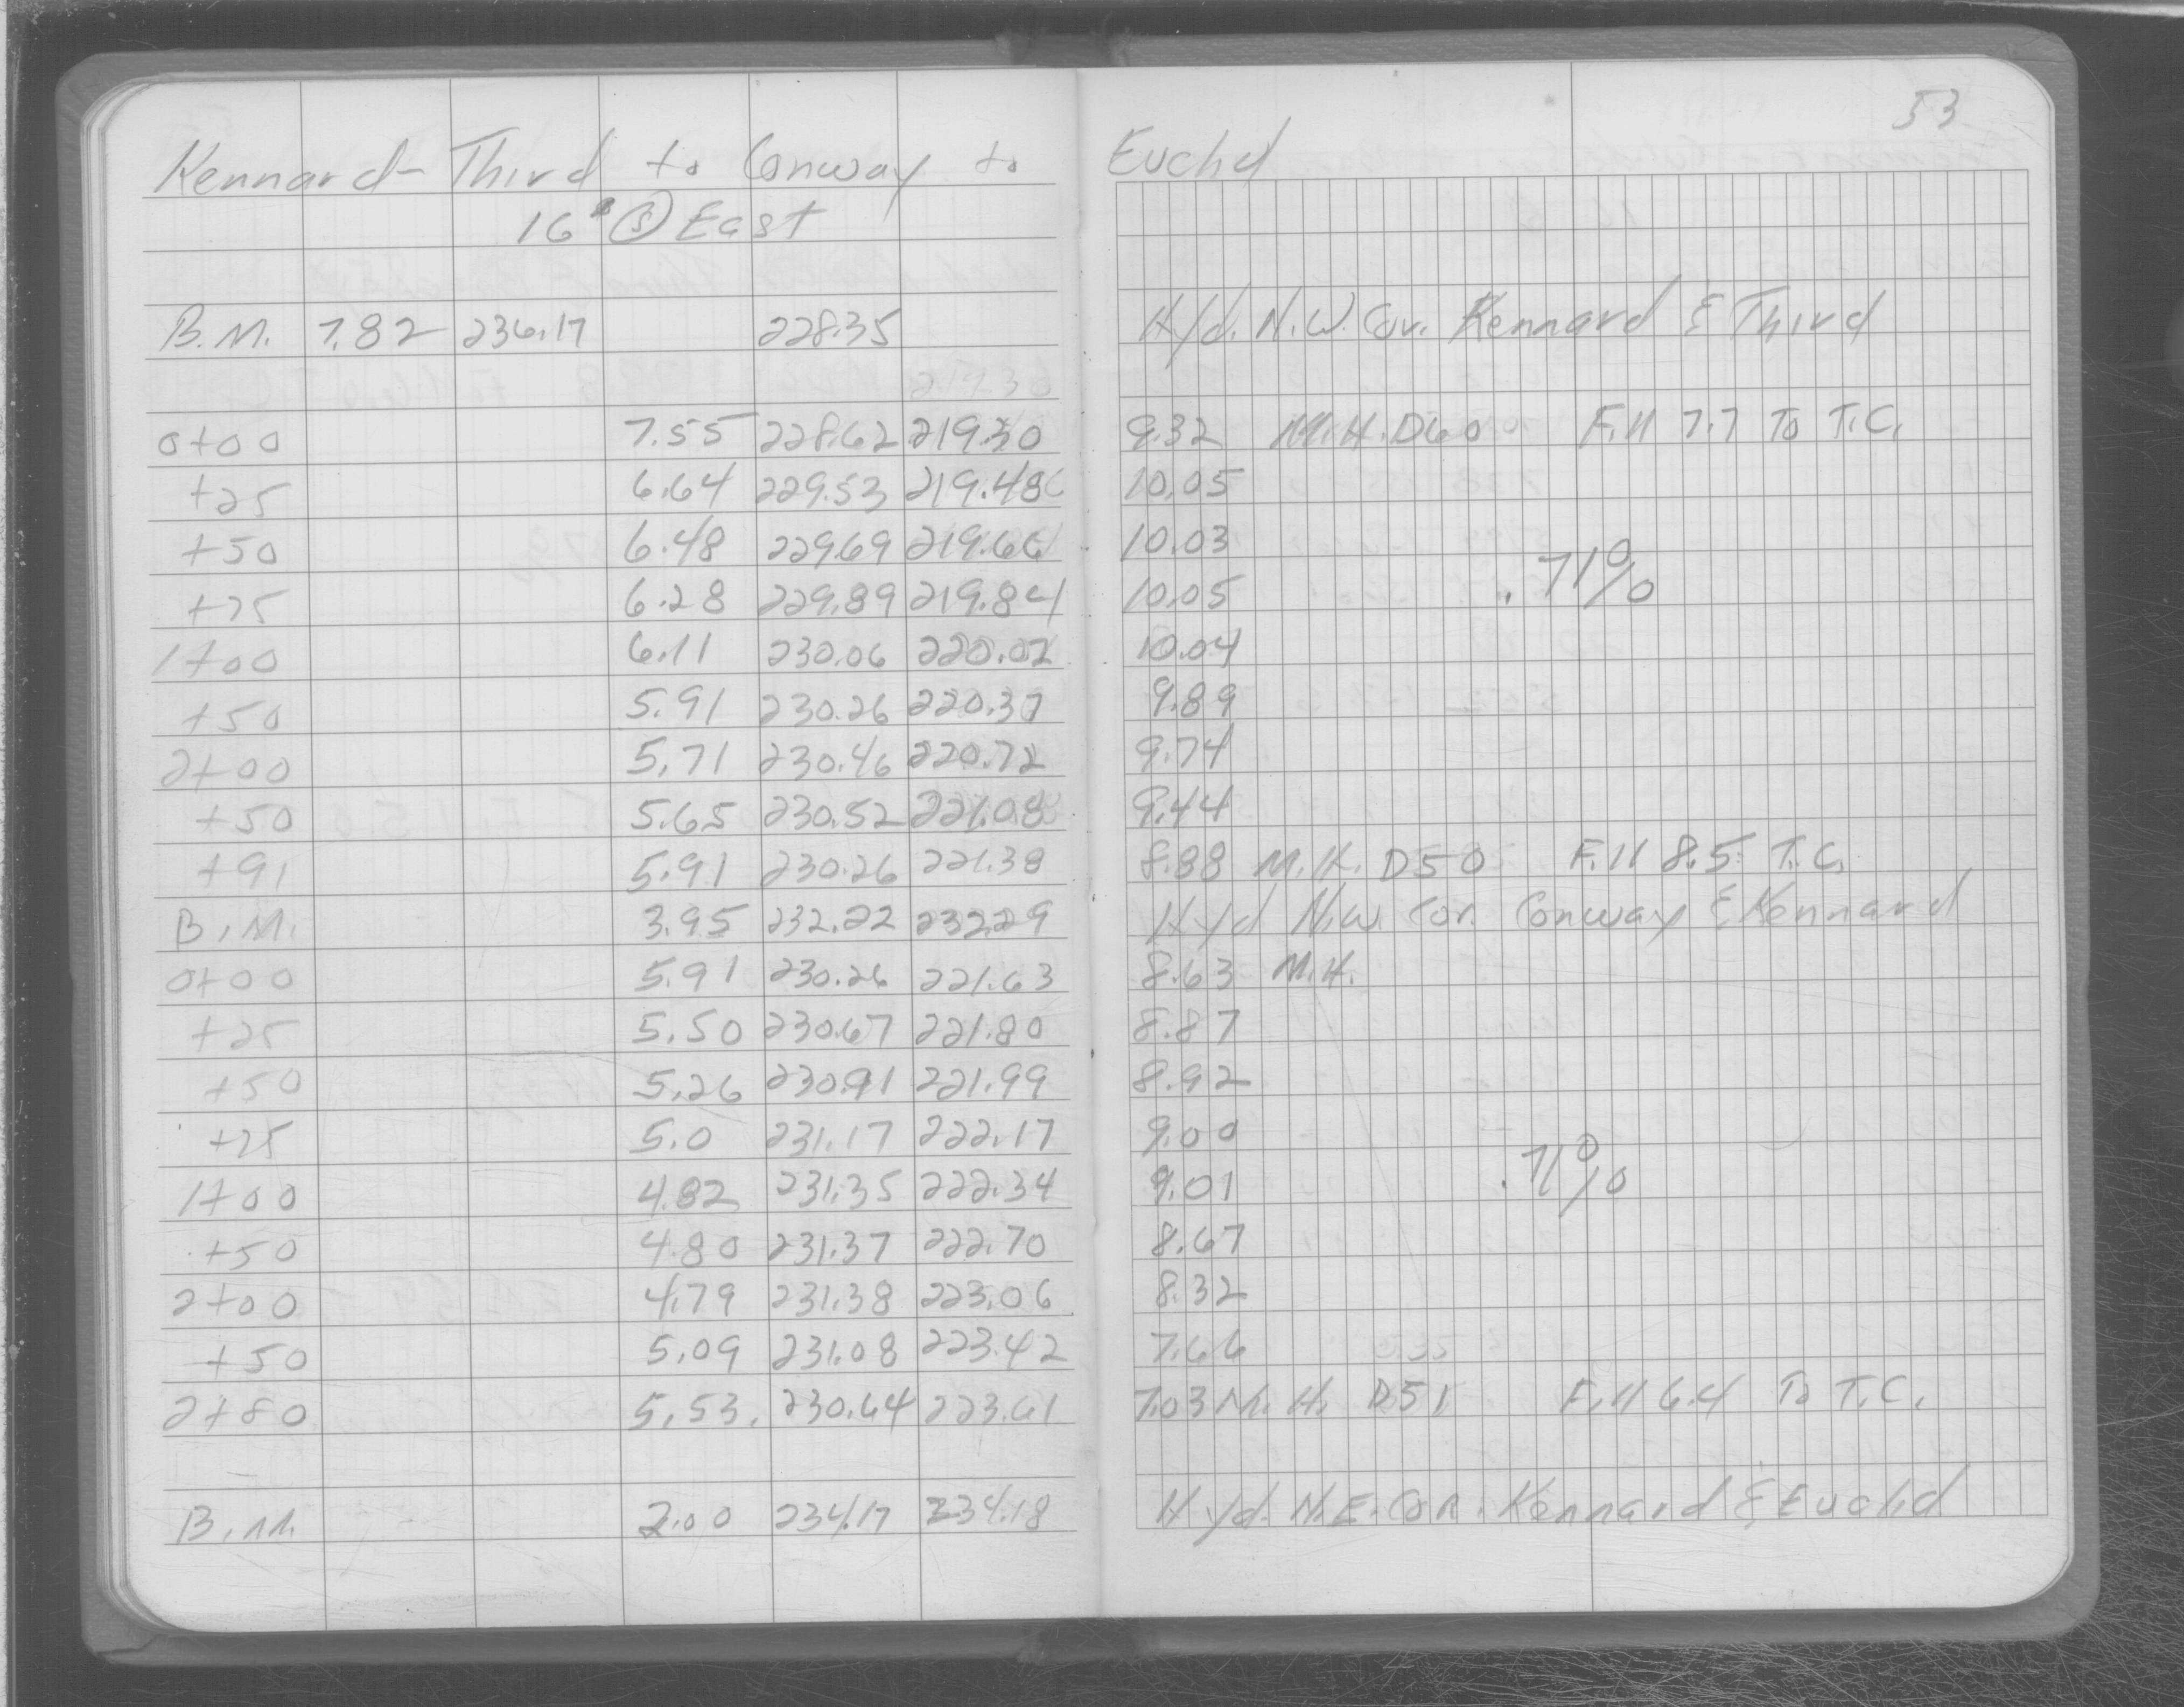 53
Kennard - Third to Conway to Euclid
16" Ⓢ East
B.M. 7.82 236.17 228.35 Hyd. N.W. Cor. Kennard & Third
219.30
0+00 7.55 228.62 219.30 9.32 M.H. D60 Fill 7.7 To T.C.
+25 6.64 229.53 219.48 10.05
+50 6.48 229.69 219.66 10.03
.71%
+75 6.28 229.89 219.84 10.05
1+00 6.11 230.06 220.02 10.04
+50 5.91 230.26 220.37 9.89
2+00 5.71 230.46 220.72 9.74
+50 5.65 230.52 221.08 9.44
+91 5.91 230.26 221.38 8.88 M.H. D50 Fill 8.5 T.C.
B.M. 3.95 232.22 232.29 Hyd N.W. Cor. Conway & Kennard
0+00 5.91 230.26 221.63 8.63 M.H.
+25 5.50 230.67 221.80 8.87
+50 5.26 230.91 221.99 8.92
+75 5.0 231.17 222.17 9.00
.71%
1+00 4.82 231.35 222.34 9.01
+50 4.80 231.37 222.70 8.67
2+00 4.79 231.38 223.06 8.32
+50 5.09 231.08 223.42 7.66
2+80 5.53 230.64 223.61 7.03 M.H. D51 Fill 6.4 To T.C.
B.M. 2.00 234.17 234.18 Hyd. N.E. Cor. Kennard & Euclid